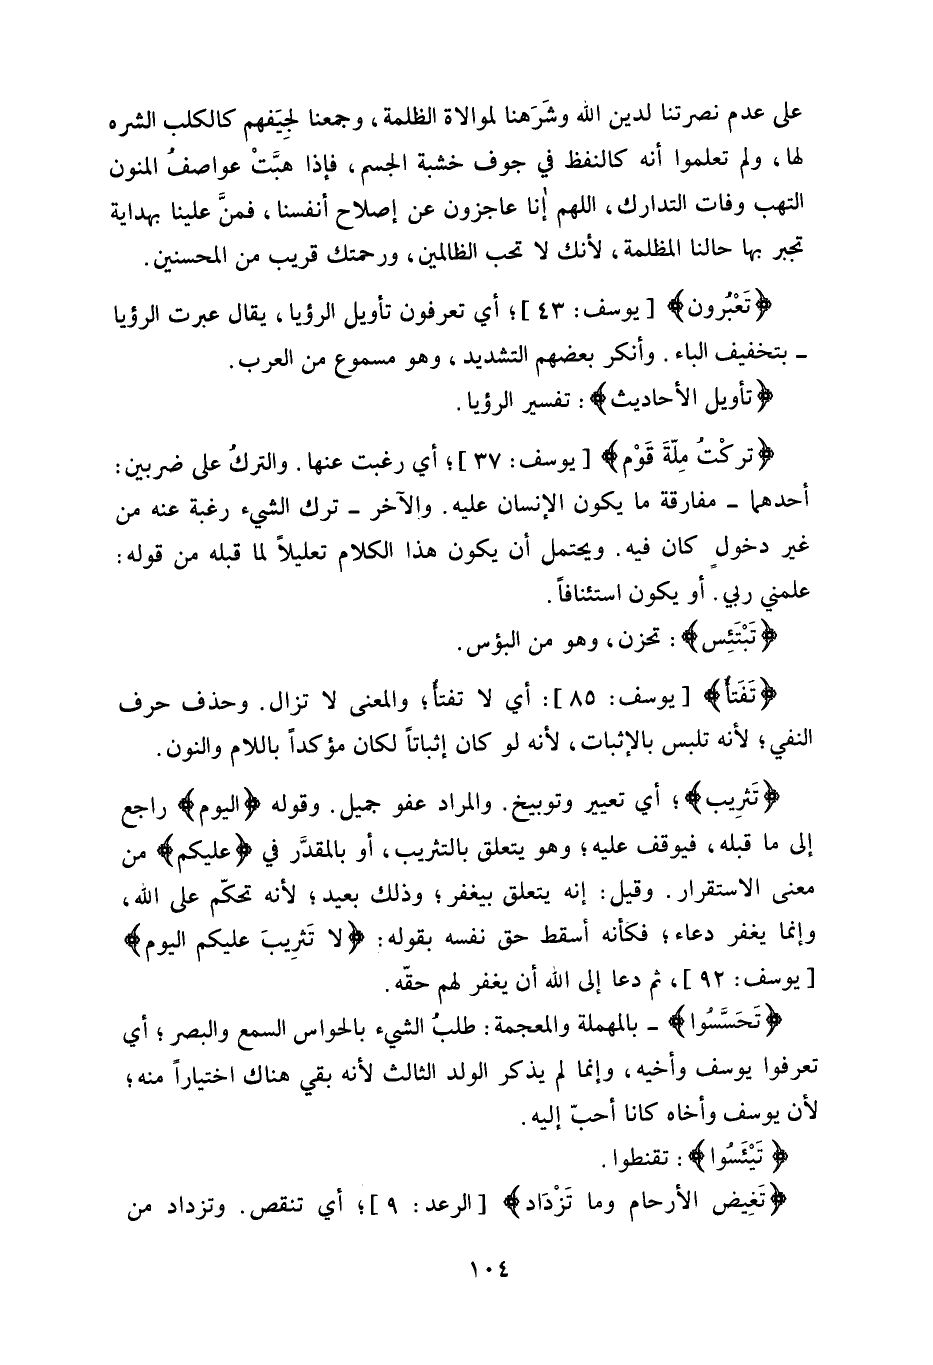 على عدم نصرتنا لدين الله وشَرَهنا لموالاة الظلمة، وجمعنا لجِيَفهم كالكلب الشره
لها، ولم تعلموا أنه كالنفظ في جوف خشبة الجسم، فإذا هبَّتْ عواصفُ المنون
التهب وفات التدارك، اللهم إنا عاجزون عن إصلاح أنفسنا، فمنَّ علينا بهداية
تجبر بها حالنا المظلمة، لأنك لا تحب الظالمين، ورحمتك قريب من المحسنين.
﴿تَعْبُرون﴾ [يوسف: ٤٣]؛ أي تعرفون تأويل الرؤيا، يقال عبرت الرؤيا
ـ بتخفيف الباء. وأنكر بعضهم التشديد، وهو مسموع من العرب.
﴿تأويل الأحاديث﴾: تفسير الرؤيا.
﴿تركْتُ مِلّةَ قَوْم﴾ [يوسف: ٣٧]؛ أي رغبت عنها. والتركُ على ضربين:
أحدهما ـ مفارقة ما يكون الإنسان عليه. والآخر ـ ترك الشيء رغبة عنه من
غير دخولٍ كان فيه. ويحتمل أن يكون هذا الكلام تعليلاً لما قبله من قوله:
علمني ربي. أو يكون استئنافاً.
﴿تَبْتَئِس﴾: تحزن، وهو من البؤس.
﴿تَفَتأُ﴾ [يوسف: ٨٥]: أي لا تفتأُ؛ والمعنى لا تزال. وحذف حرف
النفي؛ لأنه تلبس بالإثبات، لأنه لو كان إثباتاً لكان مؤكداً باللام والنون.
﴿تَثرِيب﴾؛ أي تعيير وتوبيخ. والمراد عفو جميل. وقوله ﴿اليوم﴾ راجع
إلى ما قبله، فيوقف عليه؛ وهو يتعلق بالتثريب، أو بالمقدَّر في ﴿عليكم﴾ من
معنى الاستقرار. وقيل: إنه يتعلق بيغفر؛ وذلك بعيد؛ لأنه تحكّم على الله،
وإنما يغفر دعاء؛ فكأنه أسقط حق نفسه بقوله: ﴿لا تَثرِيبَ عليكم اليوم﴾
[يوسف: ٩٢]، ثم دعا إلى الله أن يغفر لهم حقّه.
﴿تَحَسَّسُوا﴾ ـ بالمهملة والمعجمة: طلبُ الشيء بالحواس السمع والبصر؛ أي
تعرفوا يوسف وأخيه، وإنما لم يذكر الولد الثالث لأنه بقي هناك اختياراً منه؛
لأن يوسف وأخاه كانا أحبّ إليه.
﴿تَيْئَسُوا﴾: تقنطوا.
﴿تَغِيض الأرحام وما تَزْدَاد﴾ [الرعد: ٩]؛ أي تنقص. وتزداد من
١٠٤